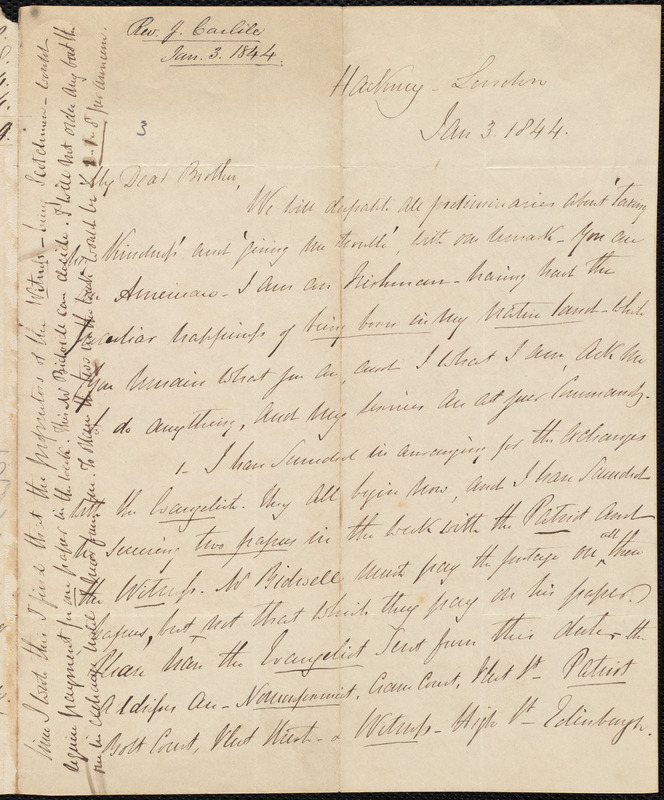 Rev. J. Carlile
Jan. 3. 1844.
Hackney - London
Jan 3. 1844.
My Dear Brother,
We will despatch all preliminaries about 'taking
Kindness' and 'giving me trouble', with one remark - You are
an American - I am an Irishman - having had the
peculiar happiness of being born in my native land - While
you remain what you are, and I what I am, ask me
to do anything, and my services are at your command.
1 - I have succeeded in arranging for the exchanges
with the Evangelist. They all begin now, and I have succeeded
in securing two papers in the week with the Patriot and
the Witness. Mr Bidwell must pay the postage on all these
papers, but not that which they pay on his paper.
Please have the Evangelist sent from this date - the
Addresses are - Nonconformist, Crane Court, Fleet St - Patriot
Bolt Court, Fleet Street - & Witness - High St - Edinburgh.
Since I wrote this I find that the proprietors of the Witness - being Scotchmen - would
require payment for one paper in the week. This Mr Bidwell can decide. I will not order any but the
one in exchange until I hear from you. To obtain the two in the week would be £ per annum.